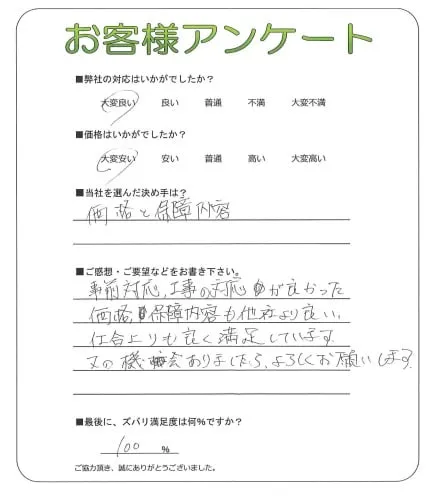 お客様アンケート
■弊社の対応はいかがでしたか?
大変良い 良い 普通 不満 大変不満
■価格はいかがでしたか?
大変安い 安い 普通 高い 大変高い
■当社を選んだ決め手は?
価格と保障内容
■ご感想・ご要望などをお書き下さい。
事前対応、工事の対応が良かった
価格、保障内容も他社より良い。
仕合上りも良く満足しています。
又の機会ありましたら、よろしくお願いします。
■最後に、ズバリ満足度は何%ですか?
100 %
ご協力頂き、誠にありがとうございました。